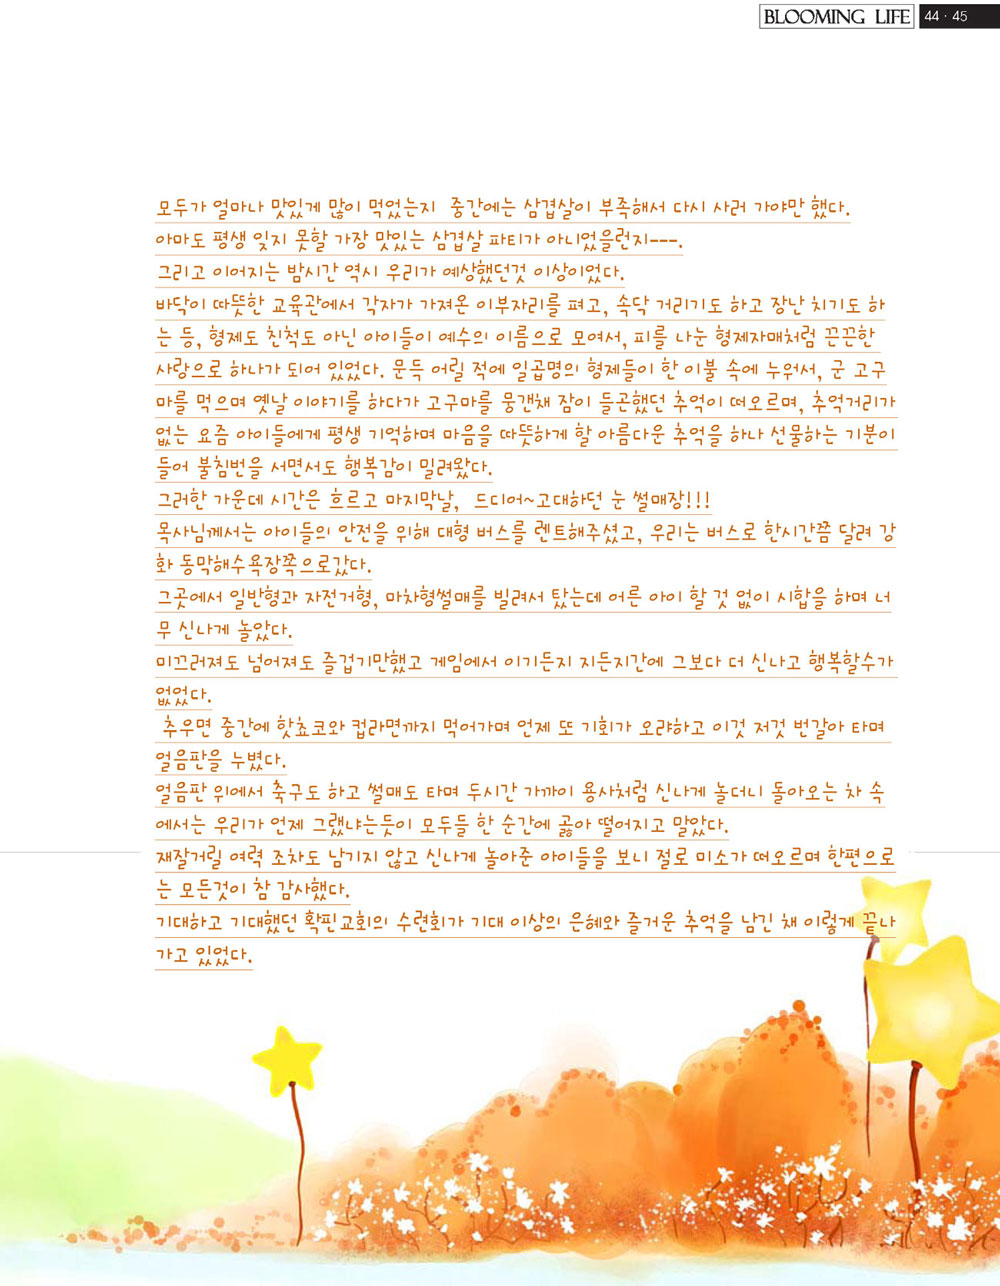 BLOOMING LIFE 44 · 45
모두가 얼마나 맛있게 많이 먹었는지 중간에는 삼겹살이 부족해서 다시 사러 가야만 했다.
아마도 평생 잊지 못할 가장 맛있는 삼겹살 파티가 아니었을런지---.
그리고 이어지는 밤시간 역시 우리가 예상했던것 이상이었다.
바닥이 따뜻한 교육관에서 각자가 가져온 이부자리를 펴고, 속닥 거리기도 하고 장난 치기도 하
는 등, 형제도 친척도 아닌 아이들이 예수의 이름으로 모여서, 피를 나눈 형제자매처럼 끈끈한
사랑으로 하나가 되어 있었다. 문득 어릴 적에 일곱명의 형제들이 한 이불 속에 누워서, 군 고구
마를 먹으며 옛날 이야기를 하다가 고구마를 뭉갠채 잠이 들곤했던 추억이 떠오르며, 추억거리가
없는 요즘 아이들에게 평생 기억하며 마음을 따뜻하게 할 아름다운 추억을 하나 선물하는 기분이
들어 불침번을 서면서도 행복감이 밀려왔다.
그러한 가운데 시간은 흐르고 마지막날, 드디어~고대하던 눈 썰매장!!!
목사님께서는 아이들의 안전을 위해 대형 버스를 렌트해주셨고, 우리는 버스로 한시간쯤 달려 강
화 동막해수욕장쪽으로갔다.
그곳에서 일반형과 자전거형, 마차형썰매를 빌려서 탔는데 어른 아이 할 것 없이 시합을 하며 너
무 신나게 놀았다.
미끄러져도 넘어져도 즐겁기만했고 게임에서 이기든지 지든지간에 그보다 더 신나고 행복할수가
없었다.
추우면 중간에 핫쵸코와 컵라면까지 먹어가며 언제 또 기회가 오랴하고 이것 저것 번갈아 타며
얼음판을 누볐다.
얼음판 위에서 축구도 하고 썰매도 타며 두시간 가까이 용사처럼 신나게 놀더니 돌아오는 차 속
에서는 우리가 언제 그랬냐는듯이 모두들 한 순간에 곯아 떨어지고 말았다.
재잘거릴 여력 조차도 남기지 않고 신나게 놀아준 아이들을 보니 절로 미소가 떠오르며 한편으로
는 모든것이 참 감사했다.
기대하고 기대했던 확핀교회의 수련회가 기대 이상의 은혜와 즐거운 추억을 남긴 채 이렇게 끝나
가고 있었다.